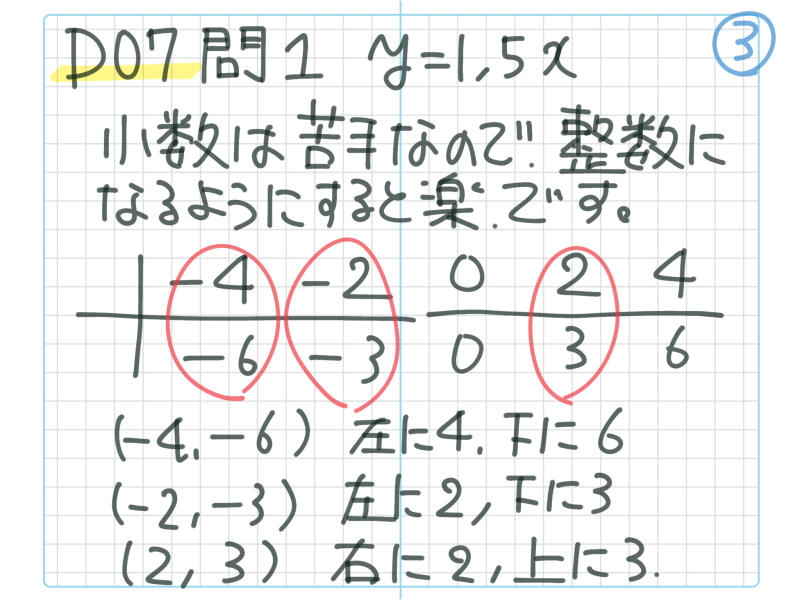 D07問1 y=1,5x ③
小数は苦手なので、整数に
なるようにすると楽です。
-4 -2 0 2 4
-6 -3 0 3 6
(-4,-6) 左に4,下に6
(-2,-3) 左に2,下に3
(2,3) 右に2,上に3.